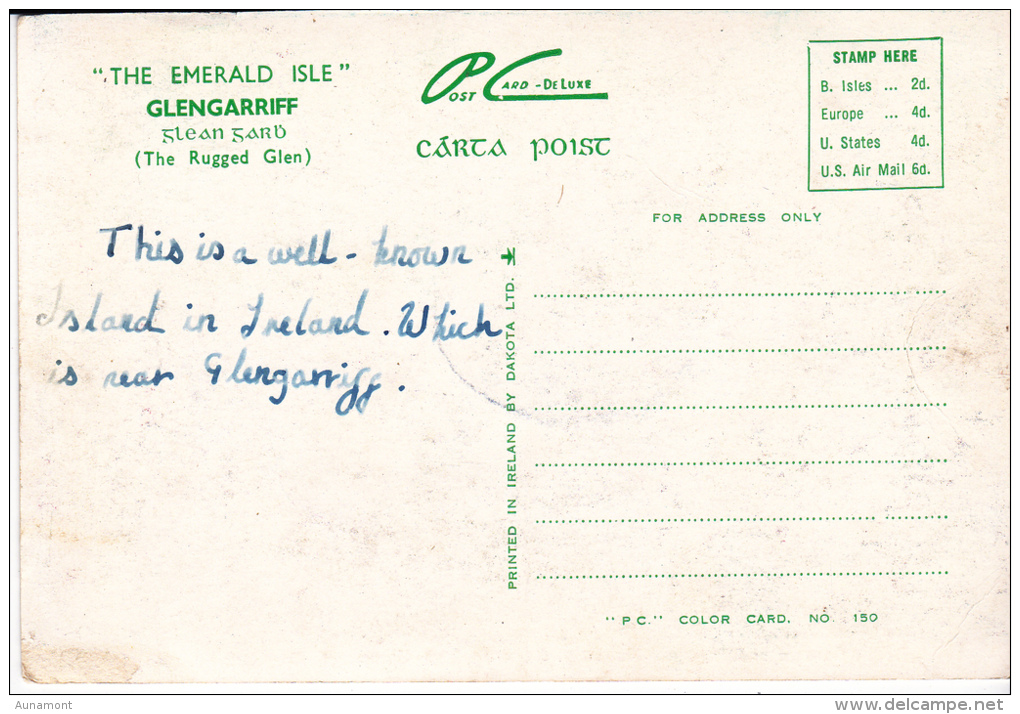 " THE EMERALD ISLE "
GLENGARRIFF
glean garḃ
(The Rugged Glen)
POST CARD - DE LUXE
CÁRTA POIST
STAMP HERE
B. Isles ... 2d.
Europe ... 4d.
U. States 4d.
U.S. Air Mail 6d.
FOR ADDRESS ONLY
This is a well - known
Island in Ireland. Which
is near Glengarriff.
PRINTED IN IRELAND BY DAKOTA LTD.
"P C." COLOR CARD. NO. 150
Aunamont
delcampe.net